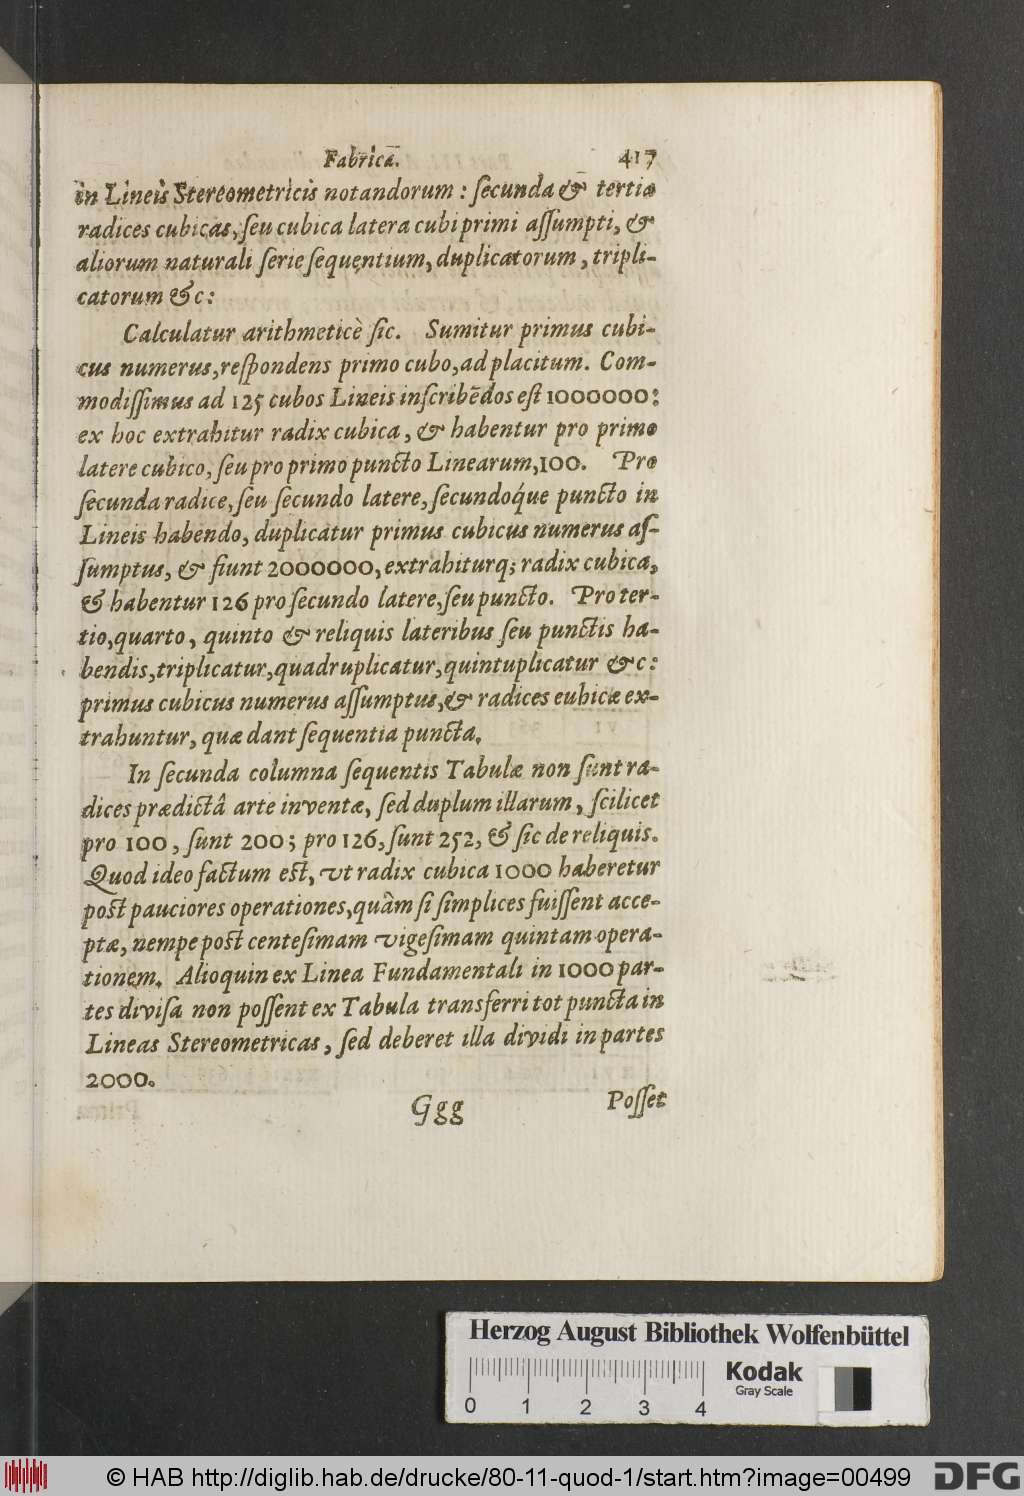 Fabricā. 417
in Lineis Stereometricis notandorum : secunda & tertia
radices cubicas, seu cubica latera cubi primi assumpti, &
aliorum naturali serie sequentium, duplicatorum, tripli-
catorum &c:
Calculatur arithmeticè sic. Sumitur primus cubi-
cus numerus, respondens primo cubo, ad placitum. Com-
modissimus ad 125 cubos Lineis inscribēdos est 1000000:
ex hoc extrahitur radix cubica, & habentur pro primo
latere cubico, seu pro primo puncto Linearum, 100. Pro
secunda radice, seu secundo latere, secundoq́ue puncto in
Lineis habendo, duplicatur primus cubicus numerus as-
sumptus, & fiunt 2000000, extrahiturq; radix cubica,
& habentur 126 pro secundo latere, seu puncto. Pro ter-
tio, quarto, quinto & reliquis lateribus seu punctis ha-
bendis, triplicatur, quadruplicatur, quintuplicatur &c:
primus cubicus numerus assumptus, & radices eubicæ ex-
trahuntur, quæ dant sequentia puncta.
In secunda columna sequentis Tabulæ non sunt ra-
dices prædictâ arte inventæ, sed duplum illarum, scilicet
pro 100, sunt 200; pro 126, sunt 252, & sic de reliquis.
Quod ideo factum est, vt radix cubica 1000 haberetur
post pauciores operationes, quàm si simplices fuissent acce-
ptæ, nempe post centesimam vigesimam quintam opera-
tionem. Alioquin ex Linea Fundamentali in 1000 par-
tes divisa non possent ex Tabula transferri tot puncta in
Lineas Stereometricas, sed deberet illa dividi in partes
2000.
Ggg Posset
Herzog August Bibliothek Wolfenbüttel
Kodak
Gray Scale
0 1 2 3 4
© HAB http://diglib.hab.de/drucke/80-11-quod-1/start.htm?image=00499 DFG